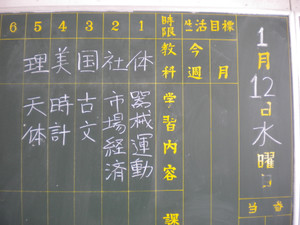 1月12日水曜日
当番
生活目標
今週
月
時限
教科
学習内容
課
1 体 器械運動
2 社 市場経済
3 国 古文
4 美 時計
5 理 天体
6